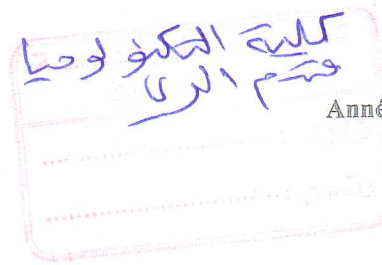 كلية التكنولوجيا
قسم الري
Anné